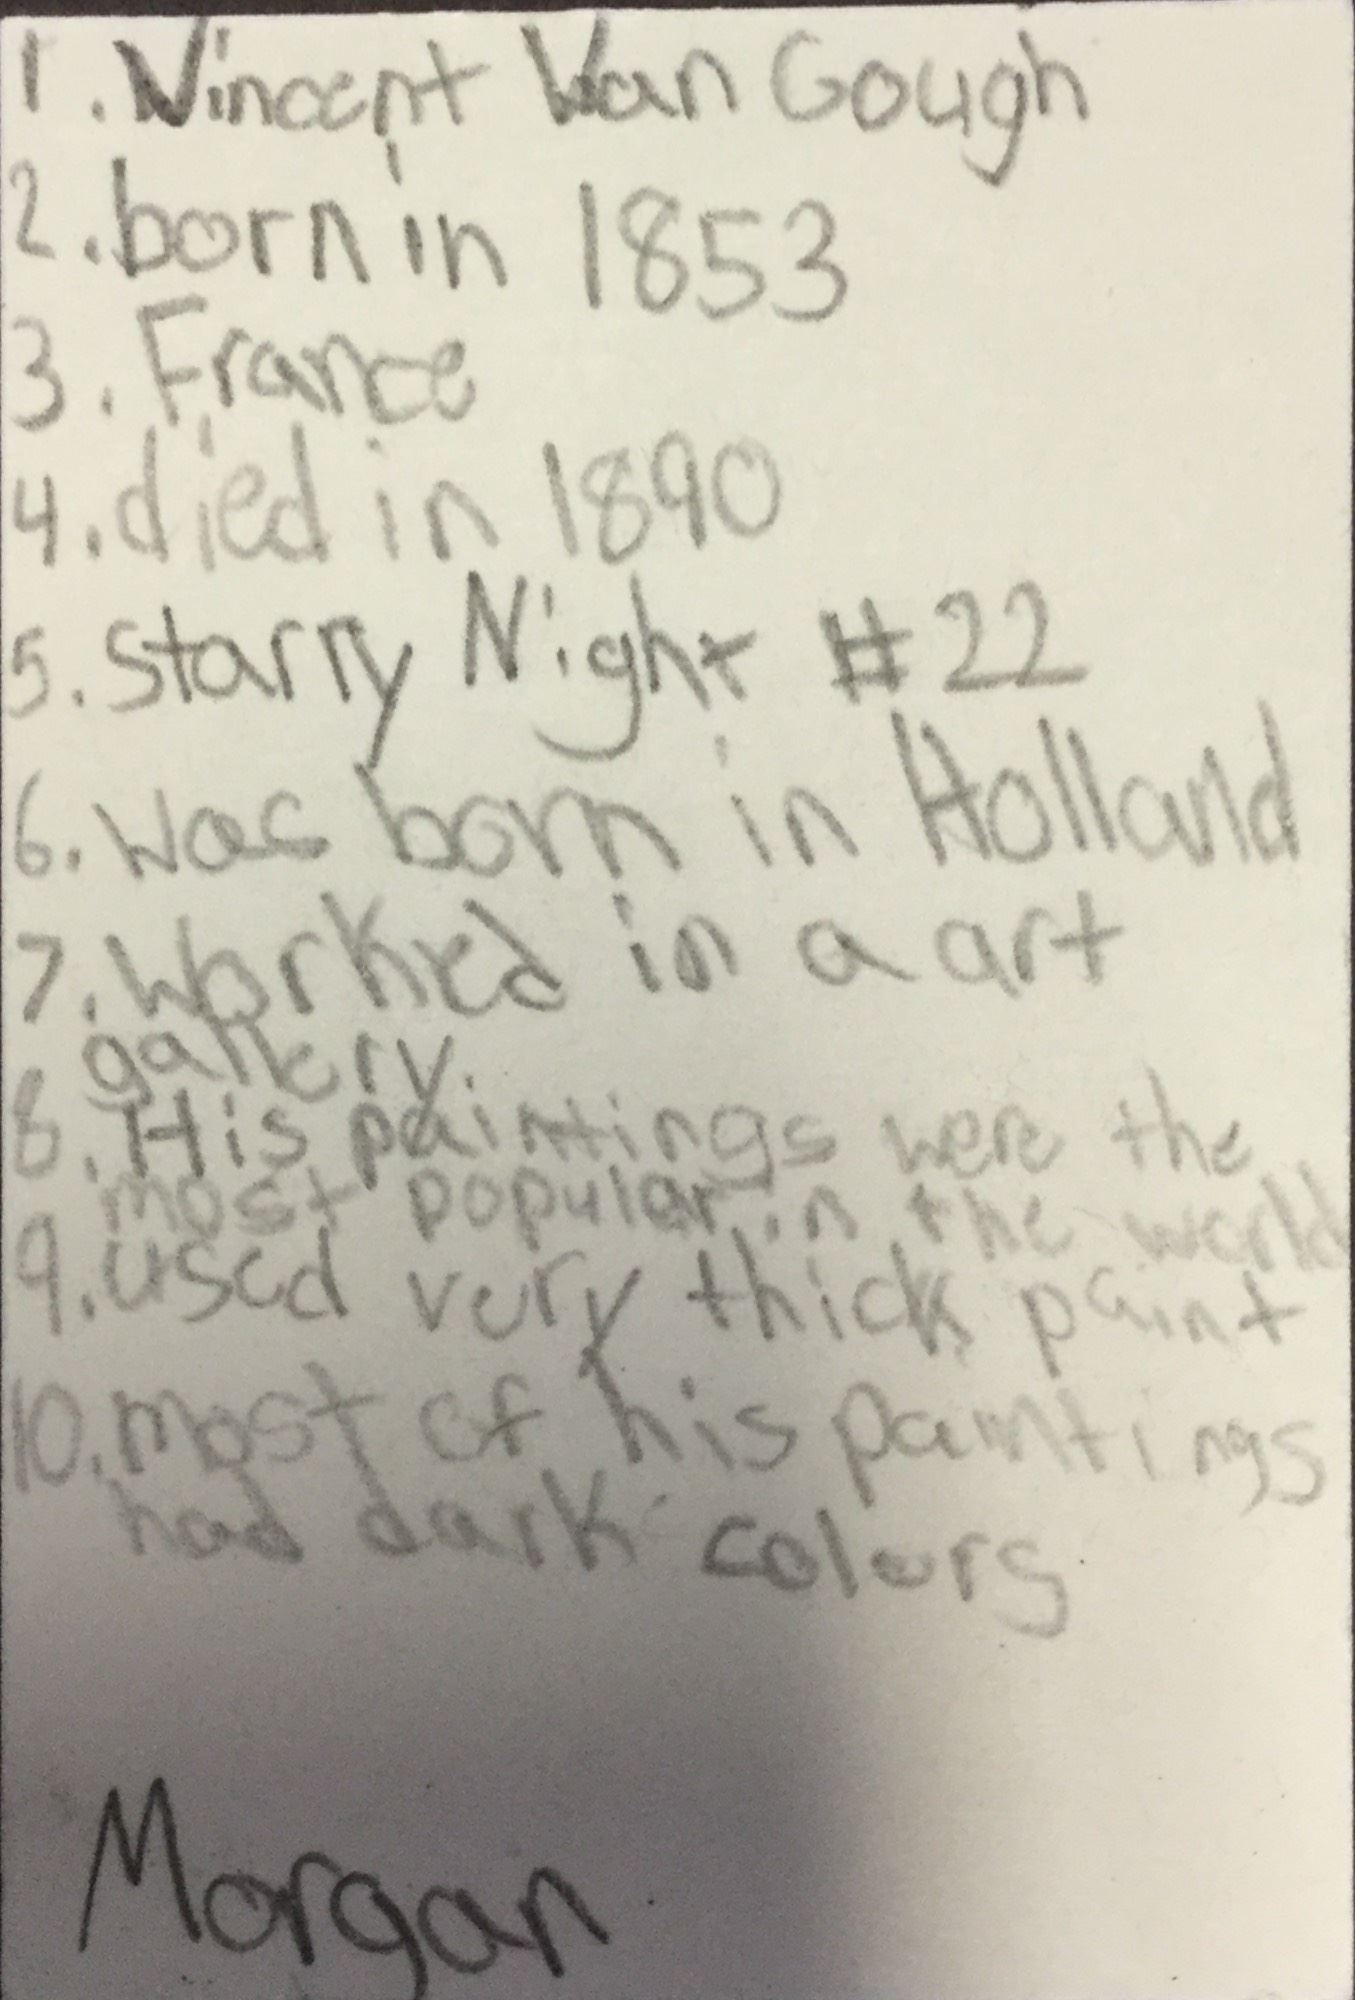 1. Vincent Van Gough
2. born in 1853
3. France
4. died in 1890
5. Starry Night #22
6. was born in Holland
7. Worked in a art
gallery.
8. His paintings were the
most popular in the world
9. used very thick paint
10. most of his paintings
had dark colors
Morgan